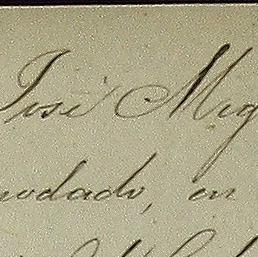 José Mig
modado, en